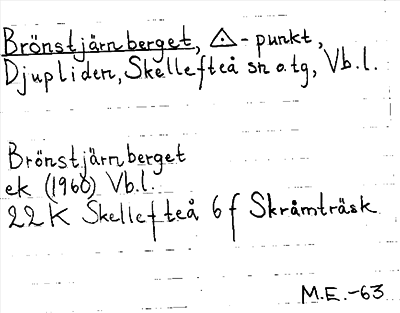 Brönstjärnberget, △-punkt,
Djupliden, Skellefteå sn o. tg, Vb.l.
Brönstjärnberget
ek (1960) Vb.l.
22 K Skellefteå 6 f Skråmträsk
M.E.-63